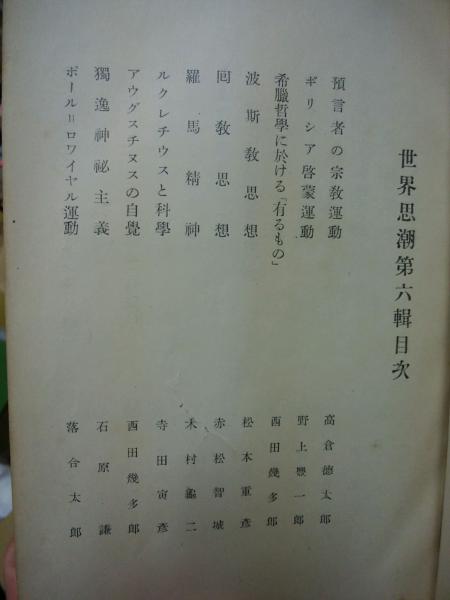 世界思潮第六輯目次
預言者の宗教運動
高倉徳太郎
ギリシア啓蒙運動
野上豐一郎
希臘哲學に於ける「有るもの」
西田幾多郎
波斯教思想
松本重彥
囘教思想
赤松智城
羅馬精神
木村龜二
ルクレチウスと科學
寺田寅彥
アウグスチヌスの自覺
西田幾多郎
獨逸神祕主義
石原謙
ポール＝ロワイヤル運動
落合太郎